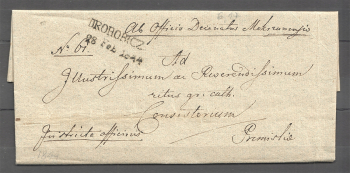 DROHOBICZ
28 Feb 1844
Ab Officio Decanatus
No. 61.
Ad
Illustrissimum ac Reverendissimum
ritus gr. cath.
Consistorium
Premisliæ